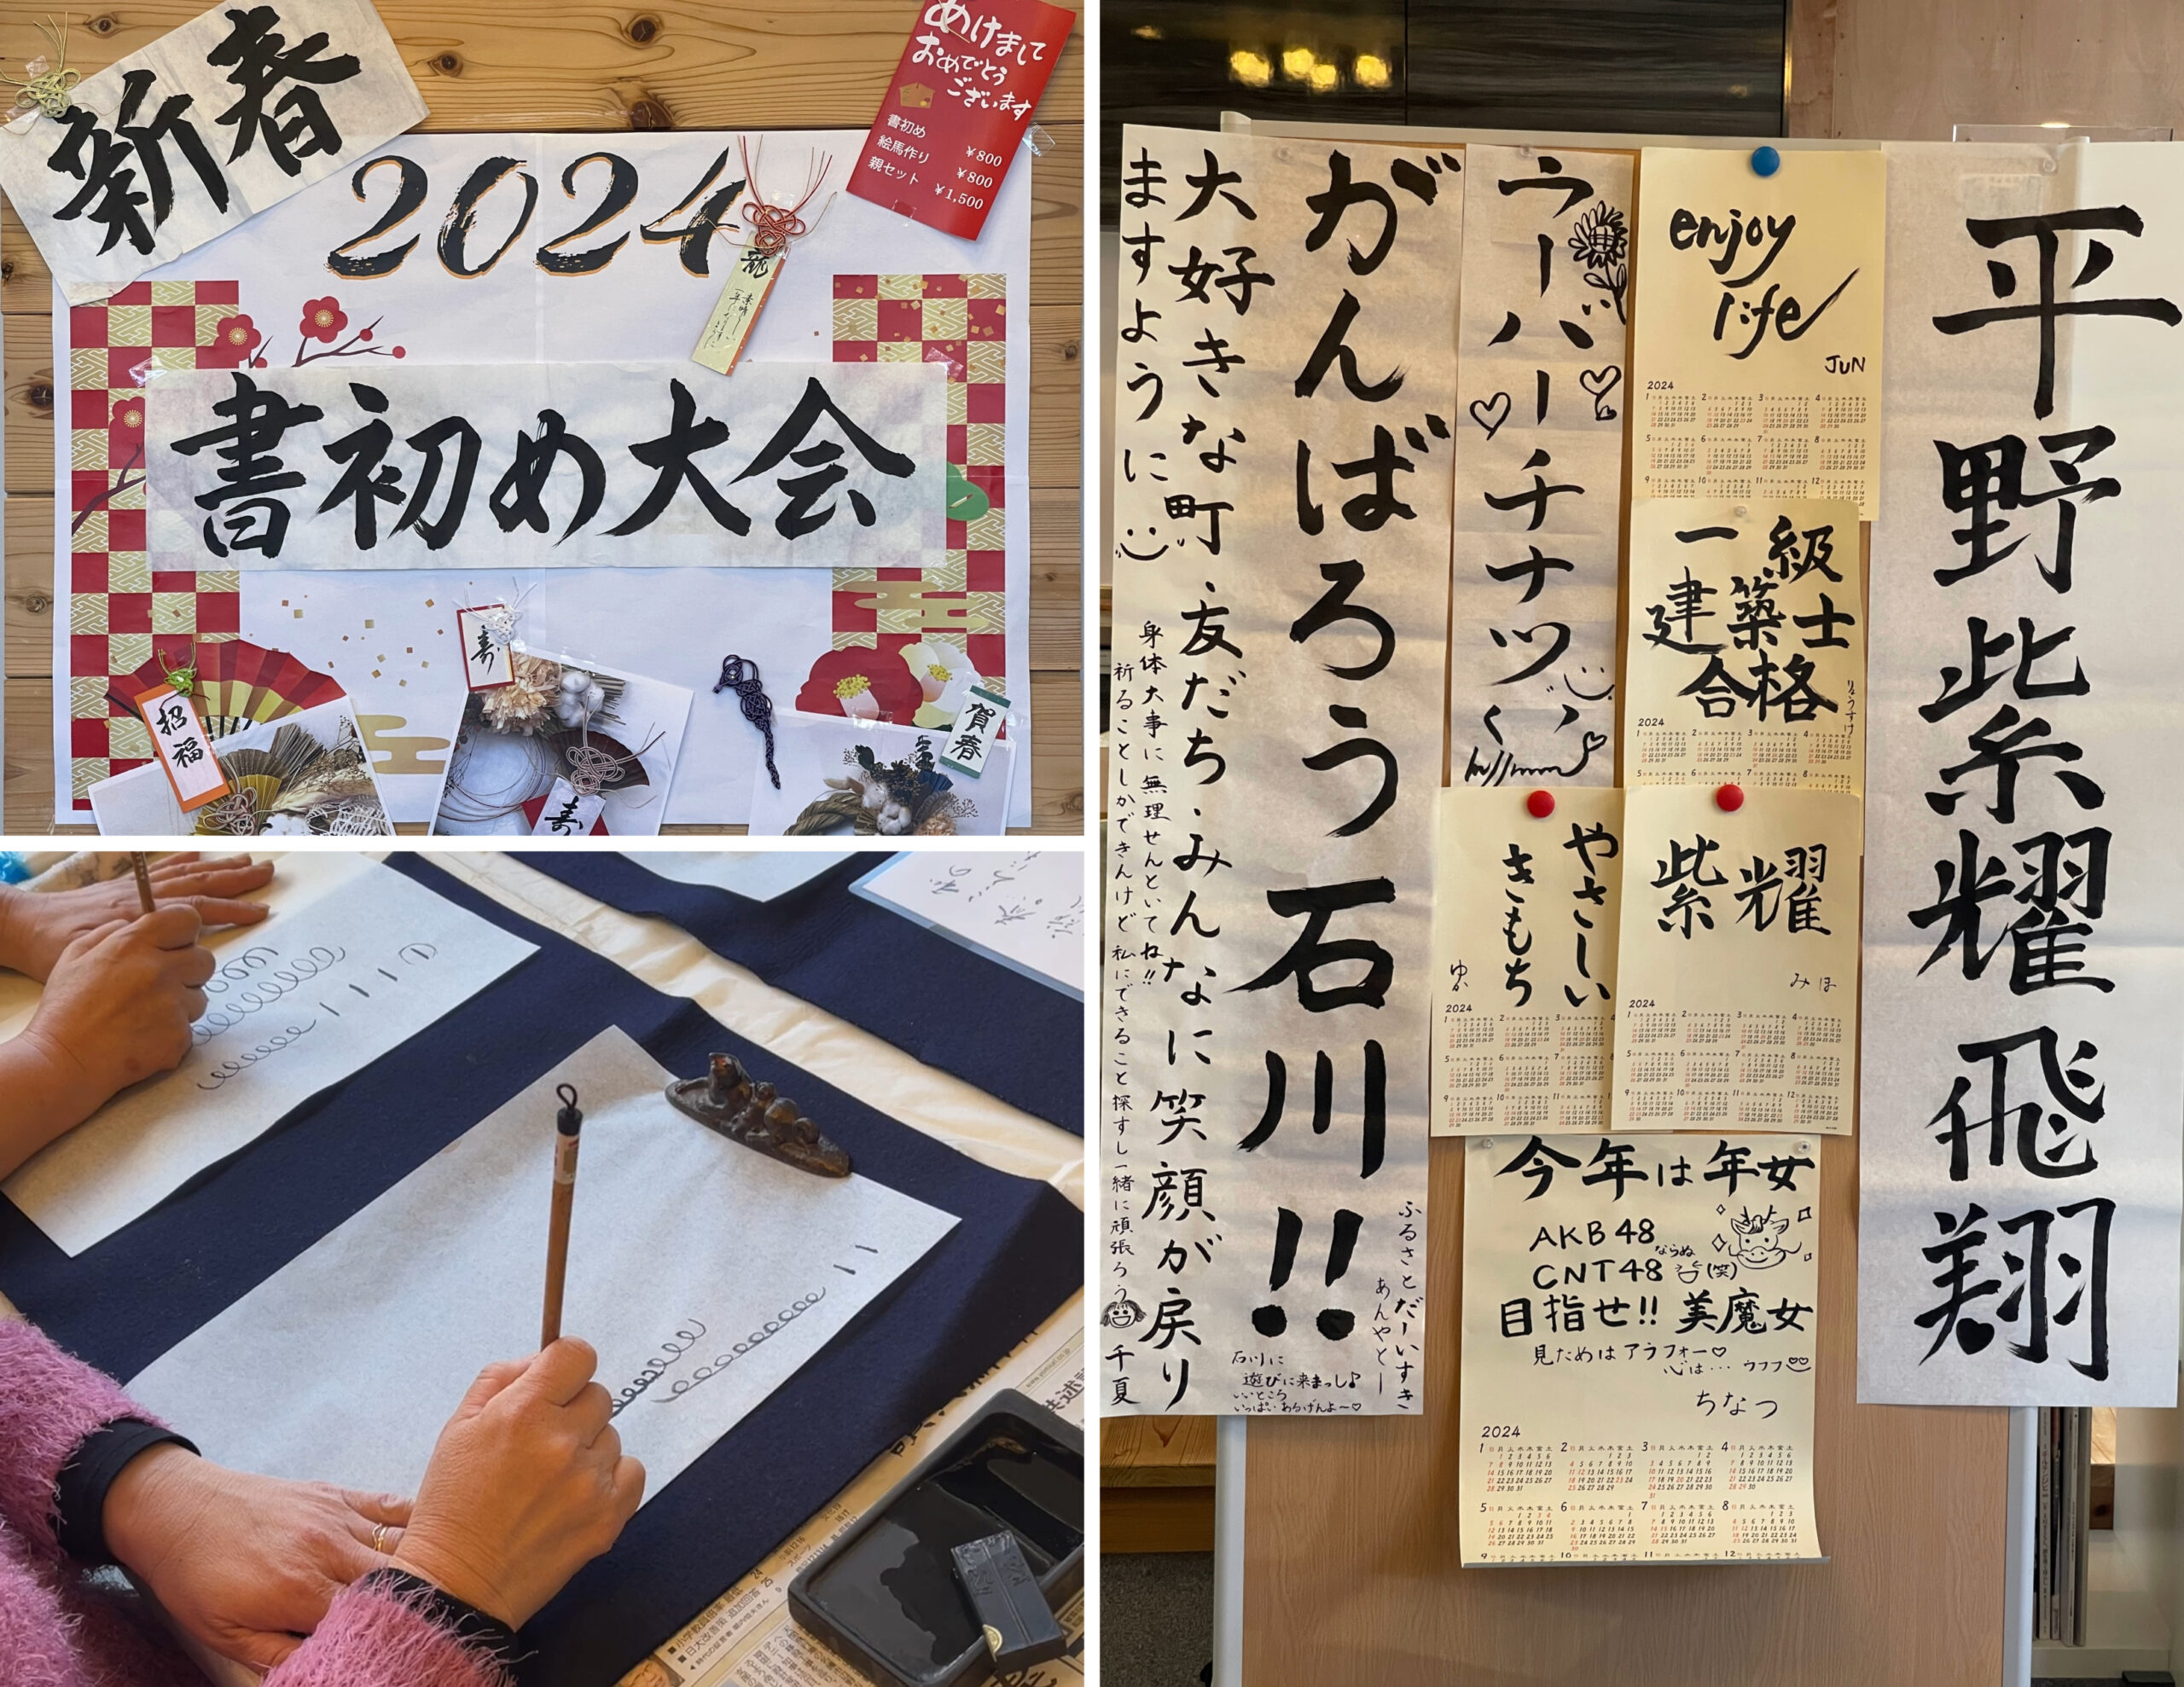 新春
2024
あけまして
おめでとう
ございます
書初め ¥800
絵馬作り ¥800
親セット ¥1,500
龍
書初め大会
招福
寿
寿
賀春
平野紫耀飛翔
enjoy
life
JUN
2024
一級
建築士
合格
りょうすけ
2024
ウーバーチナツ
がんばろう石川!!
ふるさとだーいすき
あんやとー
石川に
遊びに来まっし♪
いいところ
いっぱいあるげんよ〜♡
大好きな町・友だち・みんなに笑顔が戻り
ますように
身体大事に無理せんといてね!!
祈ることしかできんけど私にできること探すし一緒に頑張ろう
千夏
紫耀
みほ
2024
やさしい
きもち
ゆか
2024
今年は年女
AKB48
ならぬ
CNT48 (笑)
目指せ!! 美魔女
見ためはアラフォー♡
心は… ウフフ
ちなつ
2024